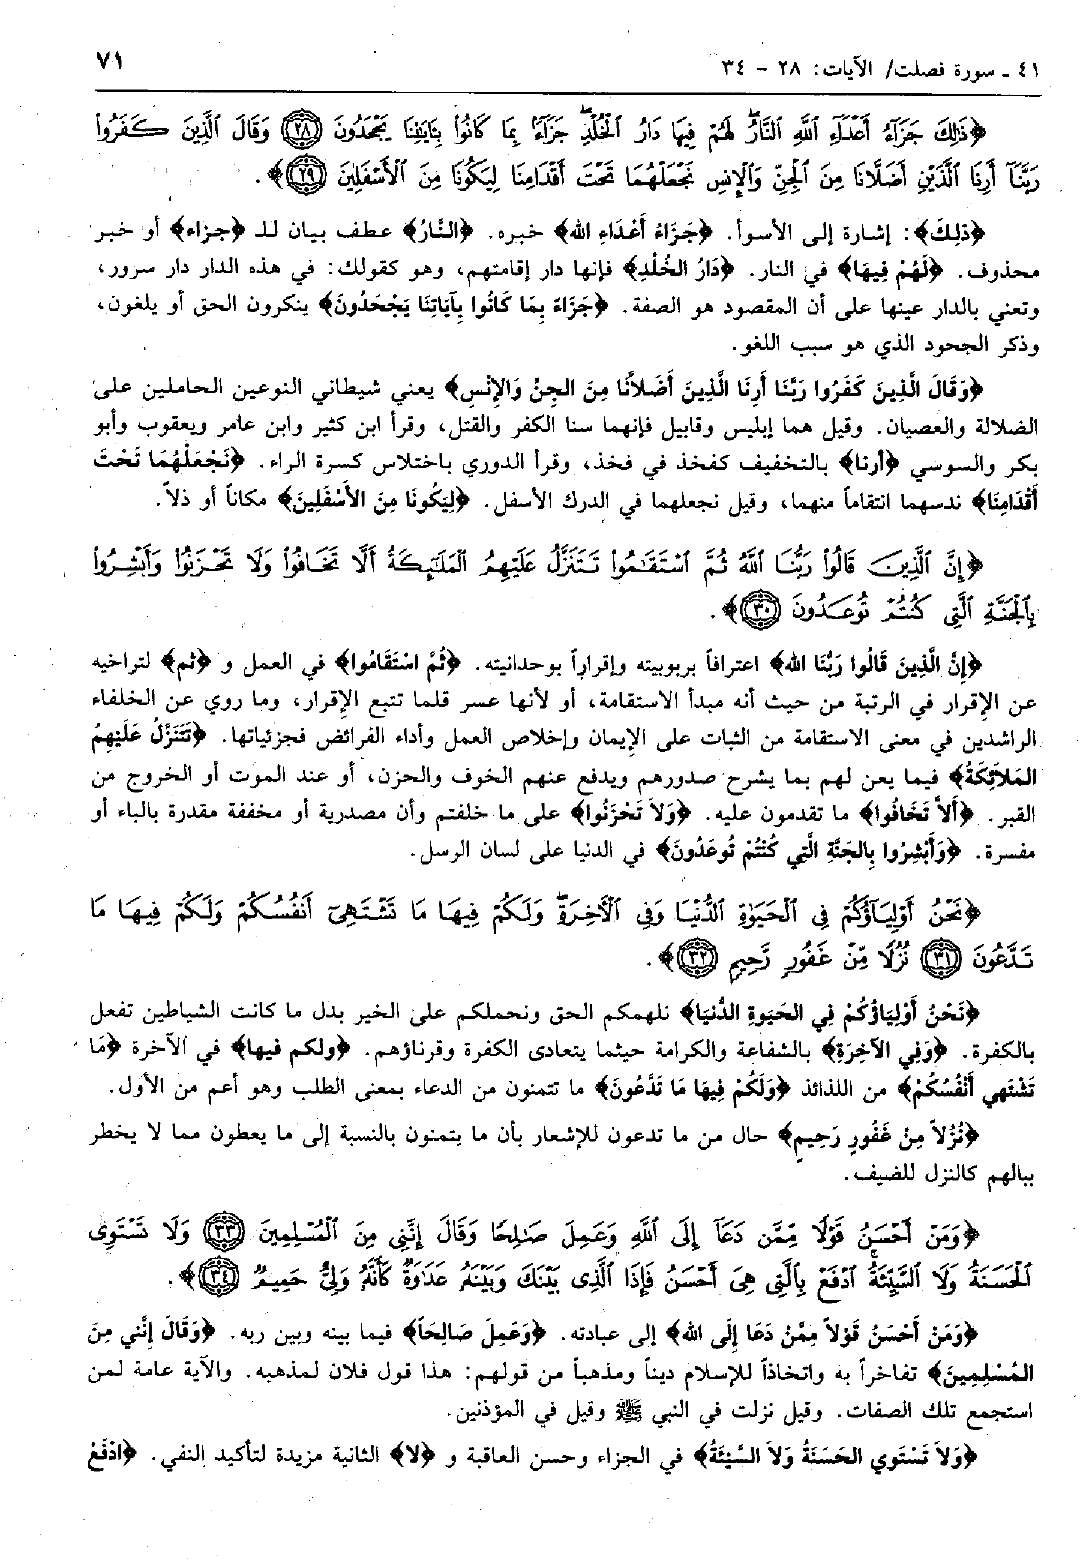 ٤١ ـ سورة فصلت/ الآيات: ٢٨ - ٣٤
٧١
﴿ذَٰلِكَ جَزَآءُ أَعْدَآءِ ٱللَّهِ ٱلنَّارُ ۖ لَهُمْ فِيهَا دَارُ ٱلْخُلْدِ ۖ جَزَآءًۢ بِمَا كَانُوا۟ بِـَٔايَٰتِنَا يَجْحَدُونَ ﴿٢٨﴾ وَقَالَ ٱلَّذِينَ كَفَرُوا۟
رَبَّنَآ أَرِنَا ٱلَّذَيْنِ أَضَلَّانَا مِنَ ٱلْجِنِّ وَٱلْإِنسِ نَجْعَلْهُمَا تَحْتَ أَقْدَامِنَا لِيَكُونَا مِنَ ٱلْأَسْفَلِينَ ﴿٢٩﴾﴾.
﴿ذٰلِكَ﴾: إشارة إلى الأسوأ. ﴿جَزَاءُ أَعْدَاءِ الله﴾ خبره. ﴿النَّارُ﴾ عطف بيان للـ ﴿جزاء﴾ أو خبر
محذوف. ﴿لَهُمْ فِيهَا﴾ في النار. ﴿دَارُ الخُلْدِ﴾ فإنها دار إقامتهم، وهو كقولك: في هذه الدار دار سرور،
وتعني بالدار عينها على أن المقصود هو الصفة. ﴿جَزَاءً بِمَا كَانُوا بِآيَاتِنَا يَجْحَدُونَ﴾ ينكرون الحق أو يلغون،
وذكر الجحود الذي هو سبب اللغو.
﴿وَقَالَ الَّذِينَ كَفَرُوا رَبَّنَا أَرِنَا الَّذَينِ أَضَلاَّنَا مِنَ الجِنِّ وَالإِنْسِ﴾ يعني شيطاني النوعين الحاملين على
الضلالة والعصيان. وقيل هما إبليس وقابيل فإنهما سنا الكفر والقتل، وقرأ ابن كثير وابن عامر ويعقوب وأبو
بكر والسوسي ﴿أرنا﴾ بالتخفيف كفخذ في فخذ، وقرأ الدوري باختلاس كسرة الراء. ﴿نَجْعَلْهُمَا تَحْتَ
أَقْدَامِنَا﴾ ندسهما انتقاماً منهما، وقيل نجعلهما في الدرك الأسفل. ﴿لِيَكُونَا مِنَ الأَسْفَلِينَ﴾ مكاناً أو ذلاً.
﴿إِنَّ ٱلَّذِينَ قَالُوا۟ رَبُّنَا ٱللَّهُ ثُمَّ ٱسْتَقَٰمُوا۟ تَتَنَزَّلُ عَلَيْهِمُ ٱلْمَلَٰٓئِكَةُ أَلَّا تَخَافُوا۟ وَلَا تَحْزَنُوا۟ وَأَبْشِرُوا۟
بِٱلْجَنَّةِ ٱلَّتِى كُنتُمْ تُوعَدُونَ ﴿٣٠﴾﴾.
﴿إِنَّ الَّذِينَ قَالُوا رَبُّنَا الله﴾ اعترافاً بربوبيته وإقراراً بوحدانيته. ﴿ثُمَّ اسْتَقَامُوا﴾ في العمل و ﴿ثم﴾ لتراخيه
عن الإقرار في الرتبة من حيث أنه مبدأ الاستقامة، أو لأنها عسر قلما تتبع الإقرار، وما روي عن الخلفاء
الراشدين في معنى الاستقامة من الثبات على الإيمان وإخلاص العمل وأداء الفرائض فجزئياتها. ﴿تَتَنَزَّلُ عَلَيْهِمُ
المَلاَئِكَةُ﴾ فيما يعن لهم بما يشرح صدورهم ويدفع عنهم الخوف والحزن، أو عند الموت أو الخروج من
القبر. ﴿أَلاَّ تَخَافُوا﴾ ما تقدمون عليه. ﴿وَلاَ تَحْزَنُوا﴾ على ما خلفتم وأن مصدرية أو مخففة مقدرة بالباء أو
مفسرة. ﴿وَأَبْشِرُوا بِالجَنَّةِ الَّتِي كُنْتُمْ تُوعَدُونَ﴾ في الدنيا على لسان الرسل.
﴿نَحْنُ أَوْلِيَآؤُكُمْ فِى ٱلْحَيَوٰةِ ٱلدُّنْيَا وَفِى ٱلْءَاخِرَةِ ۖ وَلَكُمْ فِيهَا مَا تَشْتَهِىٓ أَنفُسُكُمْ وَلَكُمْ فِيهَا مَا
تَدَّعُونَ ﴿٣١﴾ نُزُلًا مِّنْ غَفُورٍ رَّحِيمٍ ﴿٣٢﴾﴾.
﴿نَحْنُ أَوْلِيَاؤُكُمْ فِي الحَيَوةِ الدُّنْيَا﴾ نلهمكم الحق ونحملكم على الخير بدل ما كانت الشياطين تفعل
بالكفرة. ﴿وَفِي الآخِرَةِ﴾ بالشفاعة والكرامة حيثما يتعادى الكفرة وقرناؤهم. ﴿ولكم فيها﴾ في الآخرة ﴿مَا
تَشْتَهِي أَنْفُسُكُمْ﴾ من اللذائذ ﴿وَلَكُمْ فِيهَا مَا تَدَّعُونَ﴾ ما تتمنون من الدعاء بمعنى الطلب وهو أعم من الأول.
﴿نُزُلاً مِنْ غَفُورٍ رَحِيمٍ﴾ حال من ما تدعون للإشعار بأن ما يتمنون بالنسبة إلى ما يعطون مما لا يخطر
ببالهم كالنزل للضيف.
﴿وَمَنْ أَحْسَنُ قَوْلًا مِّمَّن دَعَآ إِلَى ٱللَّهِ وَعَمِلَ صَٰلِحًا وَقَالَ إِنَّنِى مِنَ ٱلْمُسْلِمِينَ ﴿٣٣﴾ وَلَا تَسْتَوِى
ٱلْحَسَنَةُ وَلَا ٱلسَّيِّئَةُ ۚ ٱدْفَعْ بِٱلَّتِى هِىَ أَحْسَنُ فَإِذَا ٱلَّذِى بَيْنَكَ وَبَيْنَهُۥ عَدَٰوَةٌ كَأَنَّهُۥ وَلِىٌّ حَمِيمٌ ﴿٣٤﴾﴾.
﴿وَمَنْ أَحْسَنُ قَوْلاً مِمَّنْ دَعَا إِلَى الله﴾ إلى عبادته. ﴿وَعَمِلَ صَالِحَاً﴾ فيما بينه وبين ربه. ﴿وَقَالَ إِنَّنِي مِنَ
المُسْلِمِينَ﴾ تفاخراً به واتخاذاً للإسلام ديناً ومذهباً من قولهم: هذا قول فلان لمذهبه. والآية عامة لمن
استجمع تلك الصفات. وقيل نزلت في النبي ﷺ وقيل في المؤذنين.
﴿وَلاَ تَسْتَوِي الحَسَنَةُ وَلاَ السَّيِّئَةُ﴾ في الجزاء وحسن العاقبة و ﴿لا﴾ الثانية مزيدة لتأكيد النفي. ﴿ادْفَعْ